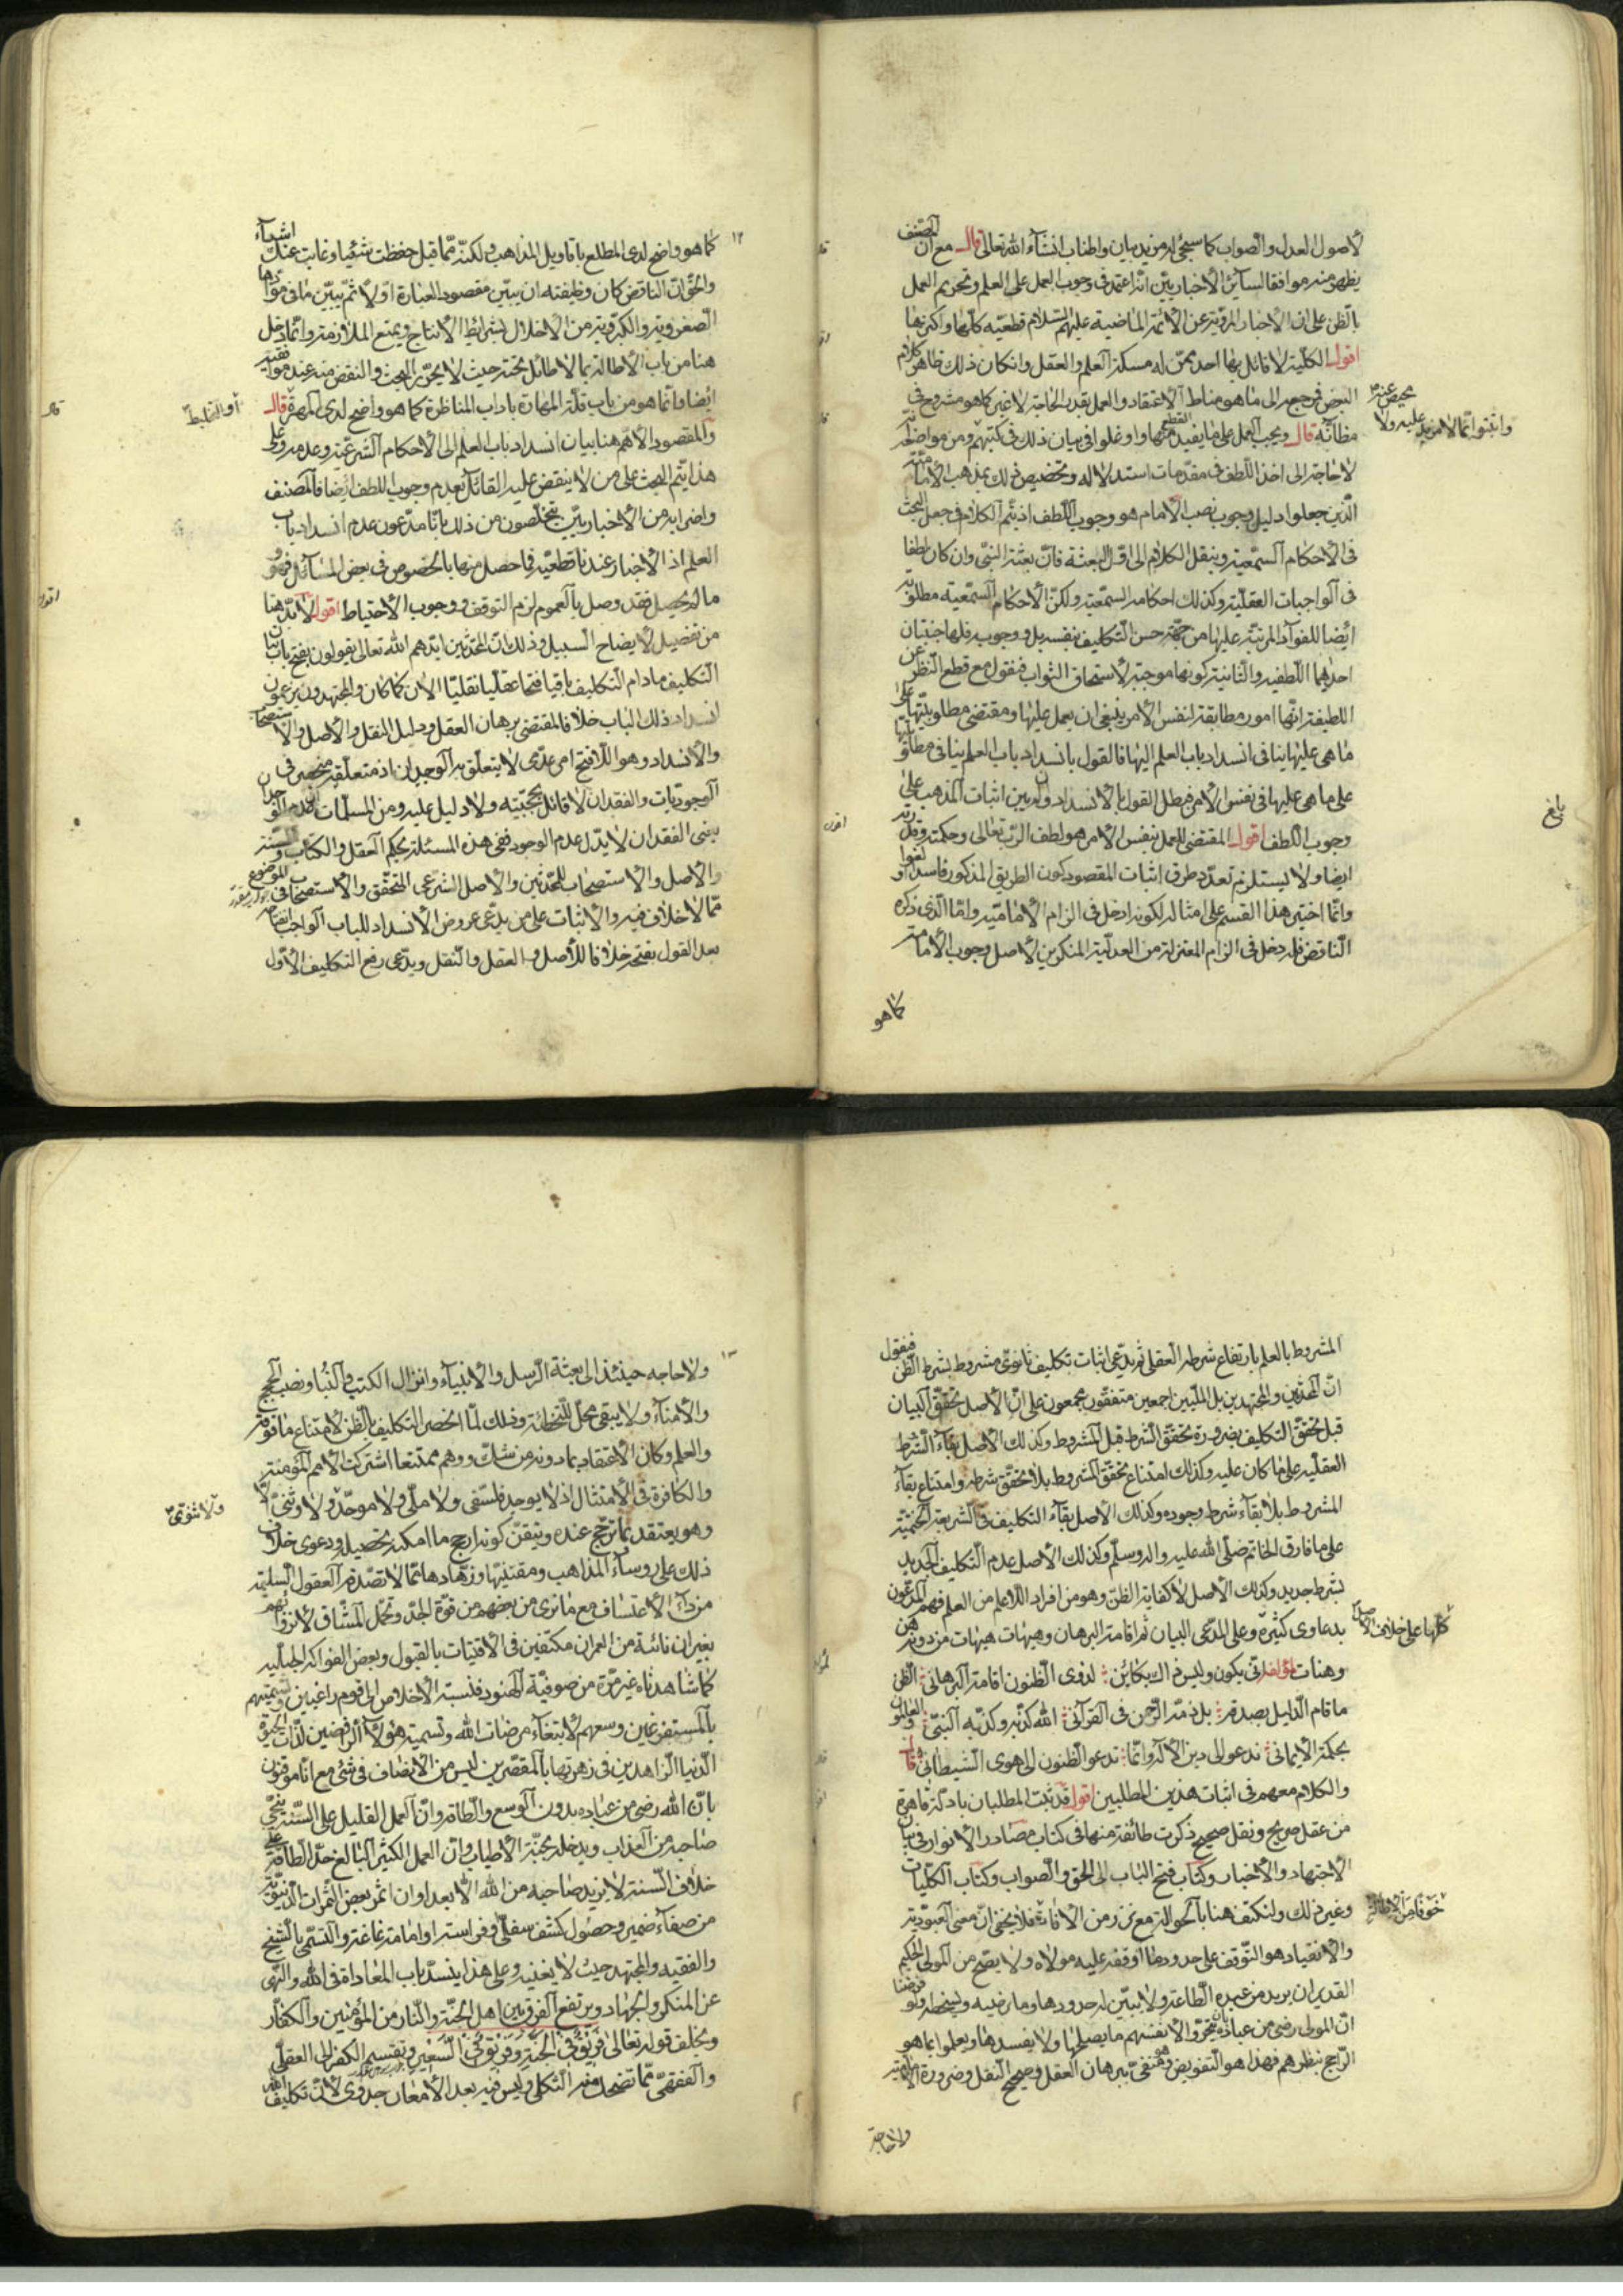 لأصول العدل والصواب كما سيجئ له مزيد بيان واطناب انشاء الله تعالى قال المصنف مع ان
يظهر منه موافقا لسائر الأخباريين انه اعتمد في وجوب العمل على العلم وتحريم العمل
بالظن على ان الاخبار المروية عن الأئمة الماضية عليهم السلام قطعية كلها او اكثرها
اقول الكلية لا قائل بها احد ممن له مسكة العلم والعقل وان كان ذلك ظاهر كلام
البعض فيرجع الى ما هو مناط الاعتقاد والعمل بقدر الحاجة لا غير كما هو مشروح في
مظانه قال ويجب العمل على ما يفيد القطع منها واوغلوا في بيان ذلك في كتبهم ومن مواضع
لا حاجة الى اخذ اللطف في مقدمات استدلاله وتخصيص ذلك بمذهب الأمامية
الذين جعلوا دليل وجوب نصب الأمام هو وجوب اللطف اذ يتم الكلام في جعل البحث
في الأحكام السمعية وينقل الكلام الى اول البعثة فان بعثة النبي وان كان لطفا
في الواجبات العقلية وكذلك احكامه السمعية ولكن الأحكام السمعية مطلوبة
ايضا للفوائد المرتبة عليها من جهة حسن التكليف بنفسه بل ووجوبه فلها جنبتان
احدهما اللطفية والثانية كونها موجبة لاستحقاق الثواب فنقول مع قطع النظر عن
اللطيفة انها امور مطابقة لنفس الأمر ينبغي ان يعمل عليها ومقتضى مطلوبيتها على
ما هي عليها ينافي انسداد باب العلم اليها فالقول بانسداد باب العلم ينافي مطلوبيتها
على ما هي عليها في نفس الأمر فبطل القول بالأنسداد وان بين اثبات المذهب على
وجوب اللطف اقول المقتضي للعمل بنفس الأمر هو لطف الرب تعالى وحكمته وقدرته
ايضا ولا يستلزم تعدد طرق اثبات المقصود كون الطريق المذكور فاسدا او لغوا
وانما اختير هذا القسم على امثاله لكونه ادخل في الزام الأمامية واما الذي ذكره
الناقض فله دخل في الزام المعتزلة من العدلية المنكرين لأصل وجوب الأمامة
كما هو
محيص عنه
عليه ولا
بلغ
١٢
كما هو واضح لدى المطلع باقاويل المذاهب ولكنه مما قيل حفظت شيئا وغابت عنك اشياء
والحق ان الناقض كان وظيفته ان يبين مقصود العبارة اولا ثم يبين ما في موادها
الصغروية والكبروية من الاخلال بشرائط الأنتاج ويمنع الملازمة وانما دخل
هنا من باب الأطالة بما لا طائل تحته حيث لا يحرر البحث والنقض منه عند موافقيه
ايضا وانما هو من باب قلة المهارة باداب المناظرة كما هو واضح لدى المهرة قال
والمقصود الأهم هنا بيان انسداد باب العلم الى الأحكام الشرعية وعدمه وعلى
هذا يتم البحث على من لا ينقض عليه القائل بعدم وجوب اللطف ايضا فالمصنف
واضرابه من الأخباريين يتخلصون من ذلك بانا مدعون عدم انسداد باب
العلم اذ الأخبار عندنا قطعية فما حصل منها بالخصوص في بعض المسائل فهو
ما لم يحصل فقد وصل بالعموم لزم التوقف ووجوب الأحتياط اقول لابد هنا
من تفصيل لأيضاح السبيل وذلك ان المحدثين ايدهم الله تعالى يقولون بفتح باب
التكليف ما دام التكليف باقيا فتحا عقليا نقليا الان كما كان والمجتهدون يزعمون
انسداد ذلك الباب خلافا لمقتضى برهان العقل ودليل النقل والأصل والأستصحاب
والأنسداد وهو اللافتح امر عدمي لا يتعلق به الوجدان اذ متعلقه منحصر في
الوجوديات والفقدان لا قائل بحجيته ولا دليل عليه ومن المسلمات ان عدم الوجدان
يعني الفقدان لا يدل عدم الوجود ففي هذه المسئلة يحكم العقل والكتاب والسنة
والأصل والأستصحاب للمحدثين والأصل الشرعي التحقق والأستصحاب في الموضوع
مما لا خلاف فيه والأثبات على من يدعي عروض الأنسداد للباب الواجب
بعد القول بفتحه خلافا للأصل والعقل والنقل ويدعي رفع التكليف الأول
او التخليط
المشروط بالعلم بارتفاع شرطه العقلي ثم يدعي اثبات تكليف ثانوي مشروط بشرط الظن فنقول
ان المحدثين والمجتهدين بل المليين اجمعين متفقون مجمعون على ان الأصل تحقق البيان
قبل تحقق التكليف بضرورة تحقق الشرط قبل المشروط وكذلك الأصل بقاء الشرط
العقلية على ما كان عليه وكذلك امتناع تحقق المشروط بلا تحقق شرطه وامتناع بقاء
المشروط بلا بقاء شرط وجوده وكذلك الأصل بقاء التكليف في الشريعة
على ما فارق الخاتم صلى الله عليه واله وسلم وكذلك الأصل عدم التكليف الجديد
بشرط جديد وكذلك الأصل لا كفاية الظن وهو من افراد اللاعلم من العلم فهم المدعون
بدعاوى كثيرة وعلى المدعي البيان ثم اقامة البرهان وهيهات هيهات من دونه هن
وهنات لمؤلفه انى يكون وليس ذاك بكائن لذوي الظنون اقامة البرهاني الظن
ما قام الدليل بصدقه بل ذمه الرحمن في القرآني الله كذبه وكذبه النبي والعالمون
بحكمة الأيماني ندعو الى دين الاله وانما تدعو الظنون الى هوى الشيطاني قال
والكلام معهم في اثبات هذين المطلبين اقول قد ثبت المطلبان بادلة قاهرة
من عقل صريح ونقل صحيح ذكرت طائفة منها في كتاب مصادر الأنوار في بيان
الأجتهاد والأخبار وكتاب فتح الباب الى الحق والصواب وكتاب الكليات
وغير ذلك ولنكتف هنا بالحوالة مع نزر من الأفادة فلا يخفى ان معنى العبودية
والأنقياد هو التوقف على حدود ما اوقفه عليه مولاه ولا يصح من المولى الحكيم
القدير ان يريد من عبده الطاعة ولا يبين له حدودها وما يرضيه ويسخطه ولو فرضنا
ان المولى رضى من عباده بان يتحروا لأنفسهم ما يصلحها ولا يفسدها ويعملوا بما هو
الراجح بنظرهم فهذا هو التفويض وهو منفي ببرهان العقل وصحيح النقل وضرورة الأمامية
ولا حاجة
كلها على خلاف الأصل
خوفا من الأطالة
١٣
ولا حاجة حينئذ الى بعثة الرسل والأنبياء وانزال الكتب والنبأ ونصب الحجج
والأمناء ولا يبقى محل للتخطئة وذلك لما انحصر التكليف بالظن لامتناع ما فوقه
والعلم وكان الأعتقاد بما دونه من شك ووهم ممتنعا اشتركت الأمم المؤمنة
والكافرة في الأمتثال اذ لا يوجد فلسفي ولا ملي ولا موحد ولا وثني الا
وهو يعتقد بما ترجح عنده ويتيقن كونه ارجح ما امكنه تحصيله ودعوى خلاف
ذلك على روساء المذاهب ومقتنيها وزهادها مما لا تصدقه العقول السليمة
من داء الأعتساف مع ما نرى من بعضهم من قوة الجد وتحمل المشاق لأنزوائهم
بغيران نائية من العمران مكتفين في الأقتيات بالقبول وبعض الفواكه الجبلية
كما شاهدناه غير مرة من صوفية الهنود فنسبة الأخلاص الى قوم راغبين وتسميتهم
بالمستفرغين وسعهم لأبتغاء مرضات الله وتسمية هؤلاء الرافضين لذات الحيوة
الدنيا الزاهدين في زهرتها بالمقصرين ليس من الأنصاف في شئ مع انا موقنون
بان الله رضى من عباده بدون الوسع والطاقة وان العمل القليل على السنة ينجي
صاحبه من العذاب ويدخله بحبة الأطياب وان العمل الكثير البالغ حد الطاقة على
خلاف السنة لا يزيد صاحبه من الله الا بعدا وان اثمر بعض الثمرات الدنيوية
من صفاء ضمير وحصول كشف سفلي وفراسة او امامة غاغة والتسمي بالشيخ
والفقيه والمجتهد حيث لا يغنيه وعلى هذا ينسد باب المعاداة في الله والنهي
عن المنكر والجهاد ويرتفع الفرق بين اهل الجنة والنار من المؤمنين والكفار
ويخلف قوله تعالى فريق في الجنة وفريق في السعير وتقسيم الكفر الى العقلي
والفقهي مما تضحك منه الثكلى وليس فيه بعد الأمعان جدوى لأن تكليف
ولا ثنوي